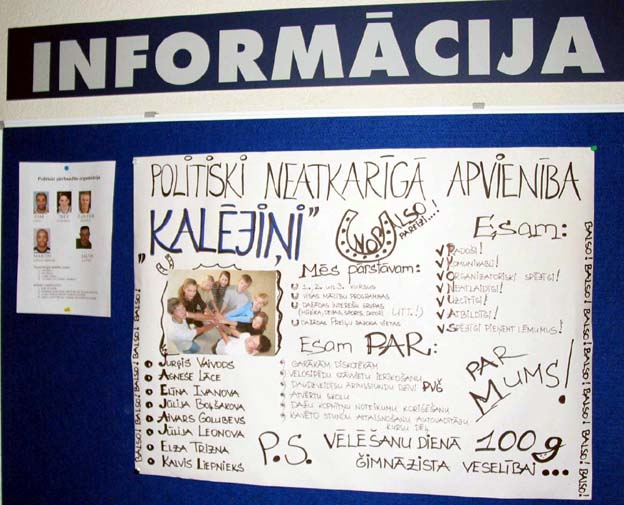 INFORMĀCIJA
POLITISKI NEATKARĪGĀ APVIENĪBA
"KALĒJIŅI"
NOBALSO PAREIZI...!
Mēs pārstāvam:
1., 2. un 3. KURSUS
VISAS MĀCĪBU PROGRAMMAS
DAŽĀDAS INTEREŠU GRUPAS
(MŪZIKA, DEJAS, SPORTS, DATORI U.T.T.!)
DAŽĀDAS PREIĻU RAJONA VIETAS
Esam:
RADOŠI!
KOMUNIKABLI!
ORGANIZATORISKI SPĒJĪGI!
NEATLAIDĪGI!
UZCĪTĪGI!
ATBILDĪGI!
SPĒJĪGI PIEŅEMT LĒMUMUS!
Esam PAR:
GARĀKĀM DISKOTĒKĀM
VELOSIPĒDU STĀVVIETU IERĪKOŠANU
DAUDZVEIDĪGU ĀRPUSSTUNDU DZĪVI PVĢ
ATVĒRTU SKOLU
DAŽU KOPMĪTŅU NOTEIKUMU KORIĢĒŠANU
KAVĒTO STUNDU ATTAISNOŠANU AUTOVADĪTĀJU
KURSU DĒĻ
PAR
MUMS!
JURĢIS VAIVODS
AGNESE LĀCE
ELĪNA IVANOVA
JŪLIJA BOĻŠAKOVA
AIVARS GOLUBEVS
JŪLIJA LEONOVA
ELZA TRIZNA
KALVIS LIEPNIEKS
P.S. VĒLĒŠANU DIENĀ 100g
ĢIMNĀZISTA VESELĪBAI...
BALSO! BALSO! BALSO! BALSO! BALSO!
BALSO! BALSO! BALSO! BALSO! BALSO! BALSO! BALSO!